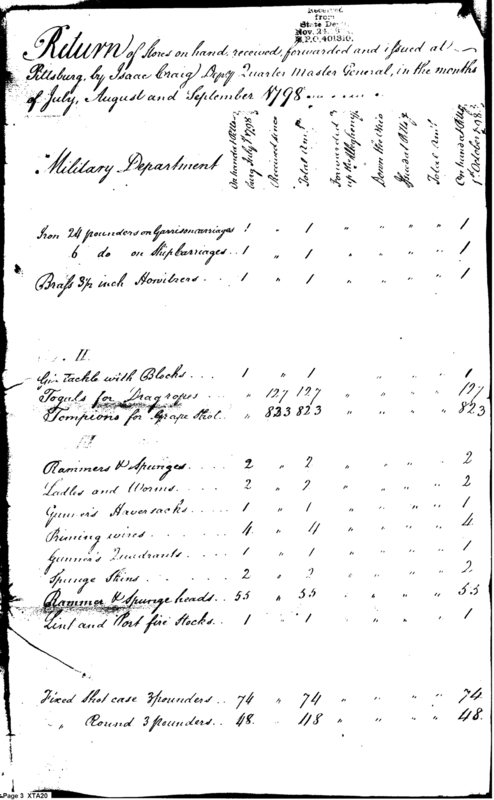 Received
from
State De
Nov. 24,
M.P.O. 401310.
Return of Stores on hand, received, forwarded and issued at
Pittsburg, by Isaac Craig Depy Quarter Master General, in the months
of July, August and September 1798
Military Department
On hand at Pitts
burg July 1st 1798
Received since
Total Amt.
Forwarded
up the Allegheny
Down the Ohio
Issued at Pittsg
Total Amt.
On hand at Pittsg
1st October 1798
Iron 24 pounders on Garrison carriages 1 " 1 " " " " 1
6 do on Ship carriages 1 " 1 " " " " 1
Brass 3½ inch Howitzers 1 " 1 " " " " 1
II
Gin tackle with Blocks 1 " 1 " " " " 1
Toguls for Dragropes " 127 127 " " " " 127
Tompions for Grape Shot " 823 823 " " " " 823
III
Rammers & Spunges 2 " 2 " " " " 2
Ladles and Worms 2 " 2 " " " " 2
Gunner's Haversacks 1 " 1 " " " " 1
Priming wires 4 " 4 " " " " 4
Gunner's Quadrants 1 " 1 " " " " 1
Spunge Skins 2 " 2 " " " " 2
Rammer & Spunge heads 55 " 55 " " " " 55
Lint and Port fire Stocks 1 " 1 " " " " 1
Fixed Shot case 3 pounders 74 " 74 " " " " 74
" Round 3 pounders 48 " 48 " " " " 48
Page 3 XTA20